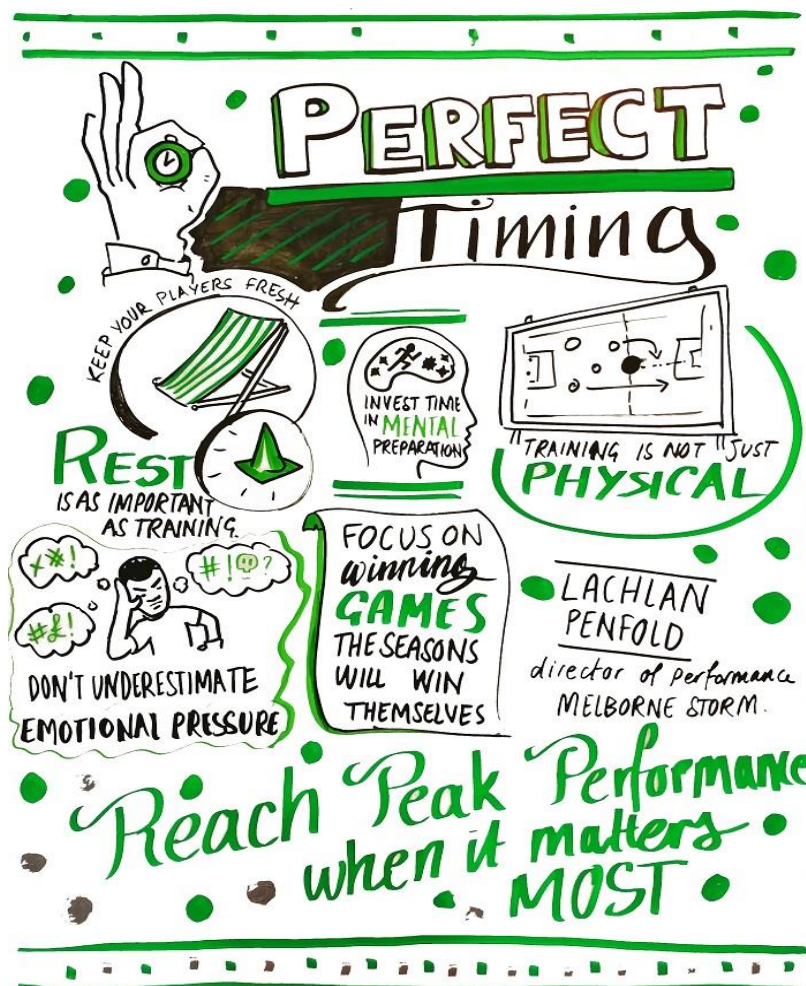 PERFECT
Timing
KEEP YOUR PLAYERS FRESH
REST
IS AS IMPORTANT
AS TRAINING.
INVEST TIME
IN MENTAL
PREPARATION
"TRAINING IS NOT "JUST
PHYSICAL
x*!
#£!
#!?
DON'T UNDERESTIMATE
EMOTIONAL PRESSURE
FOCUS ON
winning
GAMES
THE SEASONS
WILL WIN
THEMSELVES
LACHLAN
PENFOLD
director of performance
MELBORNE STORM.
Reach Peak Performance
when it matters
MOST